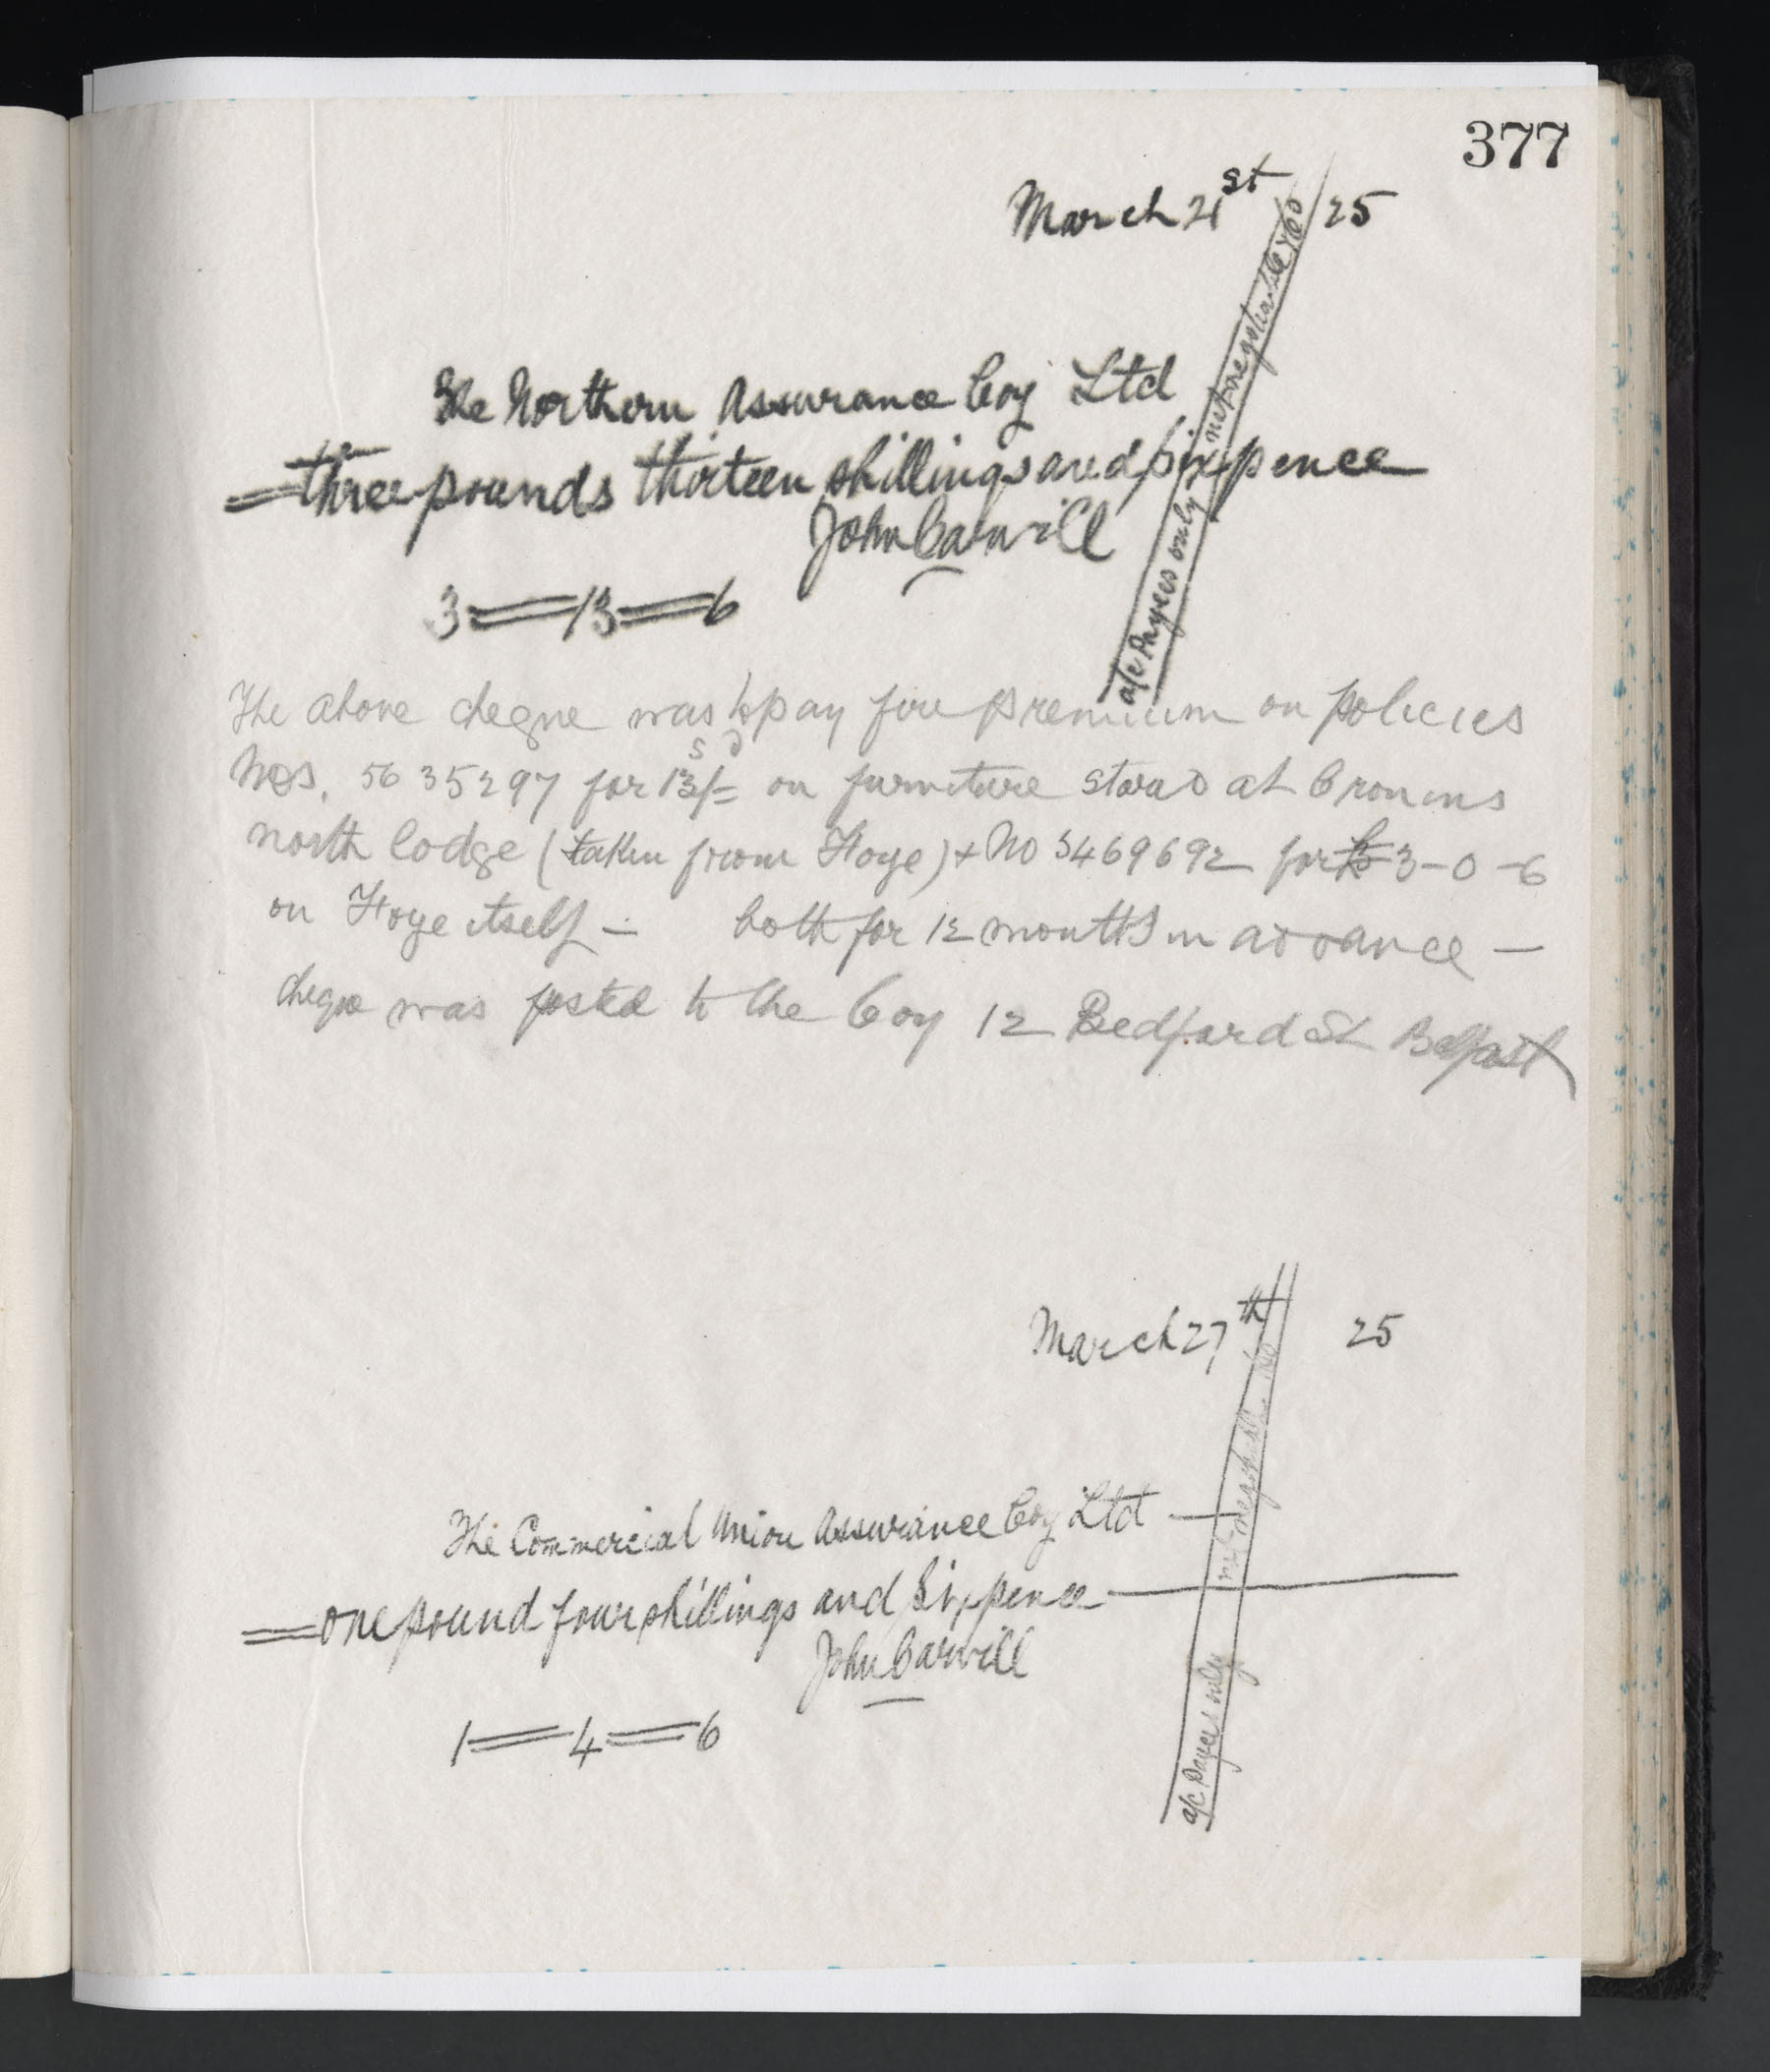 377
March 21st / 25
The Northern Assurance Coy Ltd
three pounds thirteen shillings and sixpence
John Carvill
3 = 13 = 6
a/c Payees only not negotiable &Co
The above cheqne was to pay fire premium on policies
Nos. 5635297 for 13s/=d on furniture stored at Cronins
north lodge (taken from Floye) + No 5469692 for £ 3-0-6
on Floye itself - both for 12 months in advance -
cheque was posted to the Coy 12 Bedford St Belfast
March 27th 25
The Commercial Union Assurance Coy Ltd
= one pound four shillings and sixpence
John Carvill
1 = 4 = 6
a/c Payees only not negotiable &Co